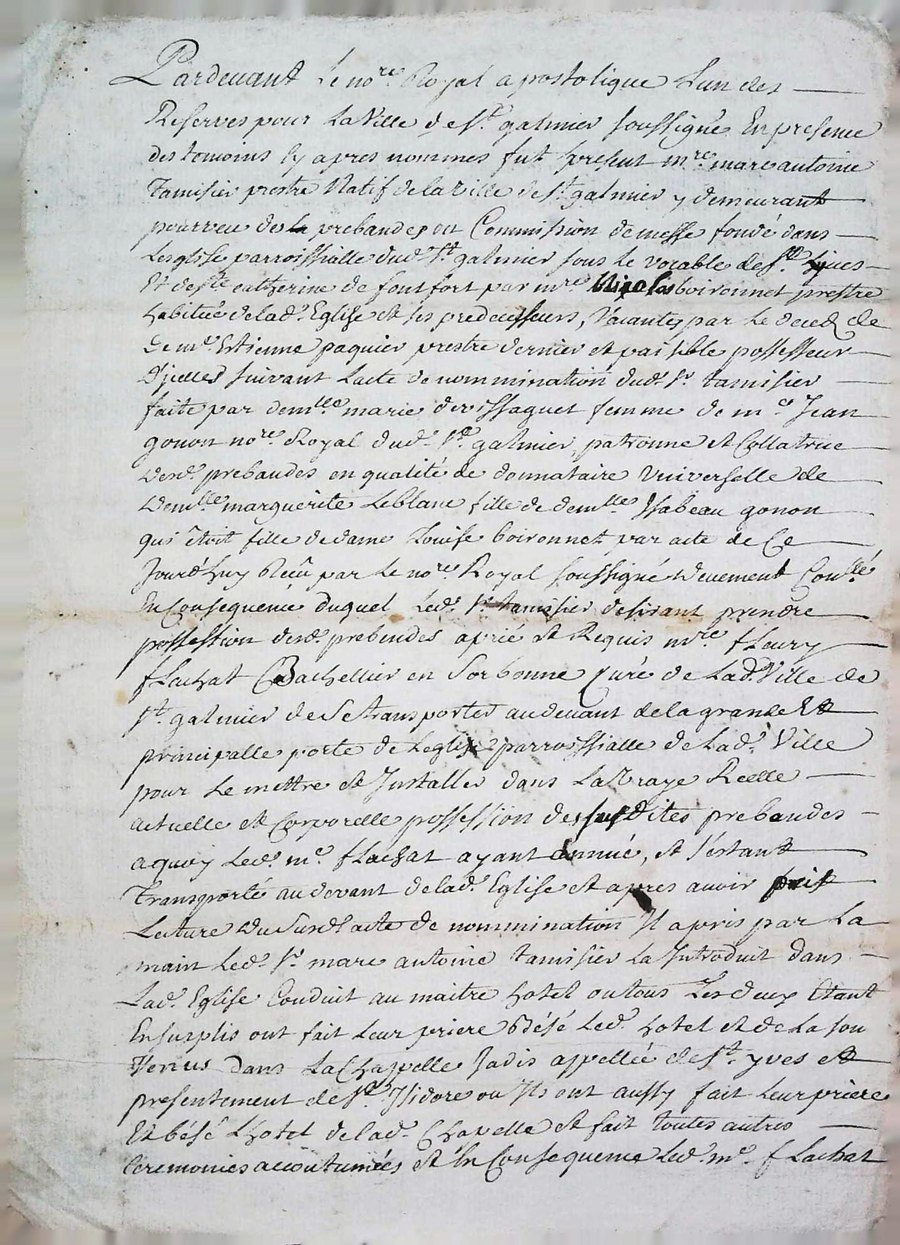 Pardevant Le no.re Royal apostolique L'un des
Reservés pour La Ville de S.t galmier soussigné En presence
des temoins Cy apres nommes fut present m.re marc antoine
Tamisier prestre Natif de la Ville de S.t galmier y demeurant
pourveu des prebandes ou Commission de messe fondé dans
Leglise parroissialle dud. S.t galmier sous le vocable de S.t
Et de S.te catherine de fontfort par m.re Nicolas boironnet prestre
habitué de lad. Eglise et ses predecesseurs, Vacantes par le deced de
De m.e Estienne paquier prestre dernier et paisible possesseur
D'jcelles suivant Lacte de nommination dud. S.r tamisier
faite par dem.lle marie femme de m.e Jean
gonon no.re Royal dud. S.t galmier, patronne et Collatrice
desd. prebandes en qualité de donnataire Universelle de
dem.lle marguerite Leblanc fille de dem.lle Ysabeau gonon
qui êtoit fille de dame Louise boironnet par acte de Ce
Jourd'huy Reçû par Le no.re Royal soussigné deuement Con.llé
En Consequence duquel Led. S.r tamisier desirant prendre
possession desd. prebendes a prié et Requis m.re fleury
fLachat Bachellier en Sorbonne Curé de Lad. Ville de
S.t galmier de Se transporter au devant de la grande Et
principalle porte de Leglise parroissialle de Lad. Ville
pour Le mettre et Jnstaller dans La Vraye Reelle
actuelle et Corporelle possession des susdites prebandes
a quoy Led. m.e fLachat ayant annué, et s'estant
Transporté au devant de lad. Eglise et apres avoir pris
Lecture du Susd. acte de nommination Il a pris par La
main Led. S.r marc antoine tamisier La Introduit dans
Lad. Eglise Conduit au maitre hotel ou tous Les deux Etant
En surplis ont fait Leur priere Bésé Led. hotel et de La son
Venus dans La Chappelle Jadis appellée de S.t yves et
presentement de S.t Isidore ou Ils ont aussy fait Leur priere
Et bésé L'hotel de lad. Chapelle et fait toutes autres
Ceremonies accoutumées et En Consequence Led. m.e fLachat